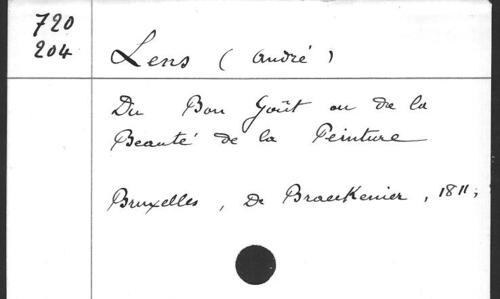 720
204
Lens ( André )
Du Bon Goût ou de la
Beauté de la Peinture
Bruxelles, De Braeckenier, 1811,